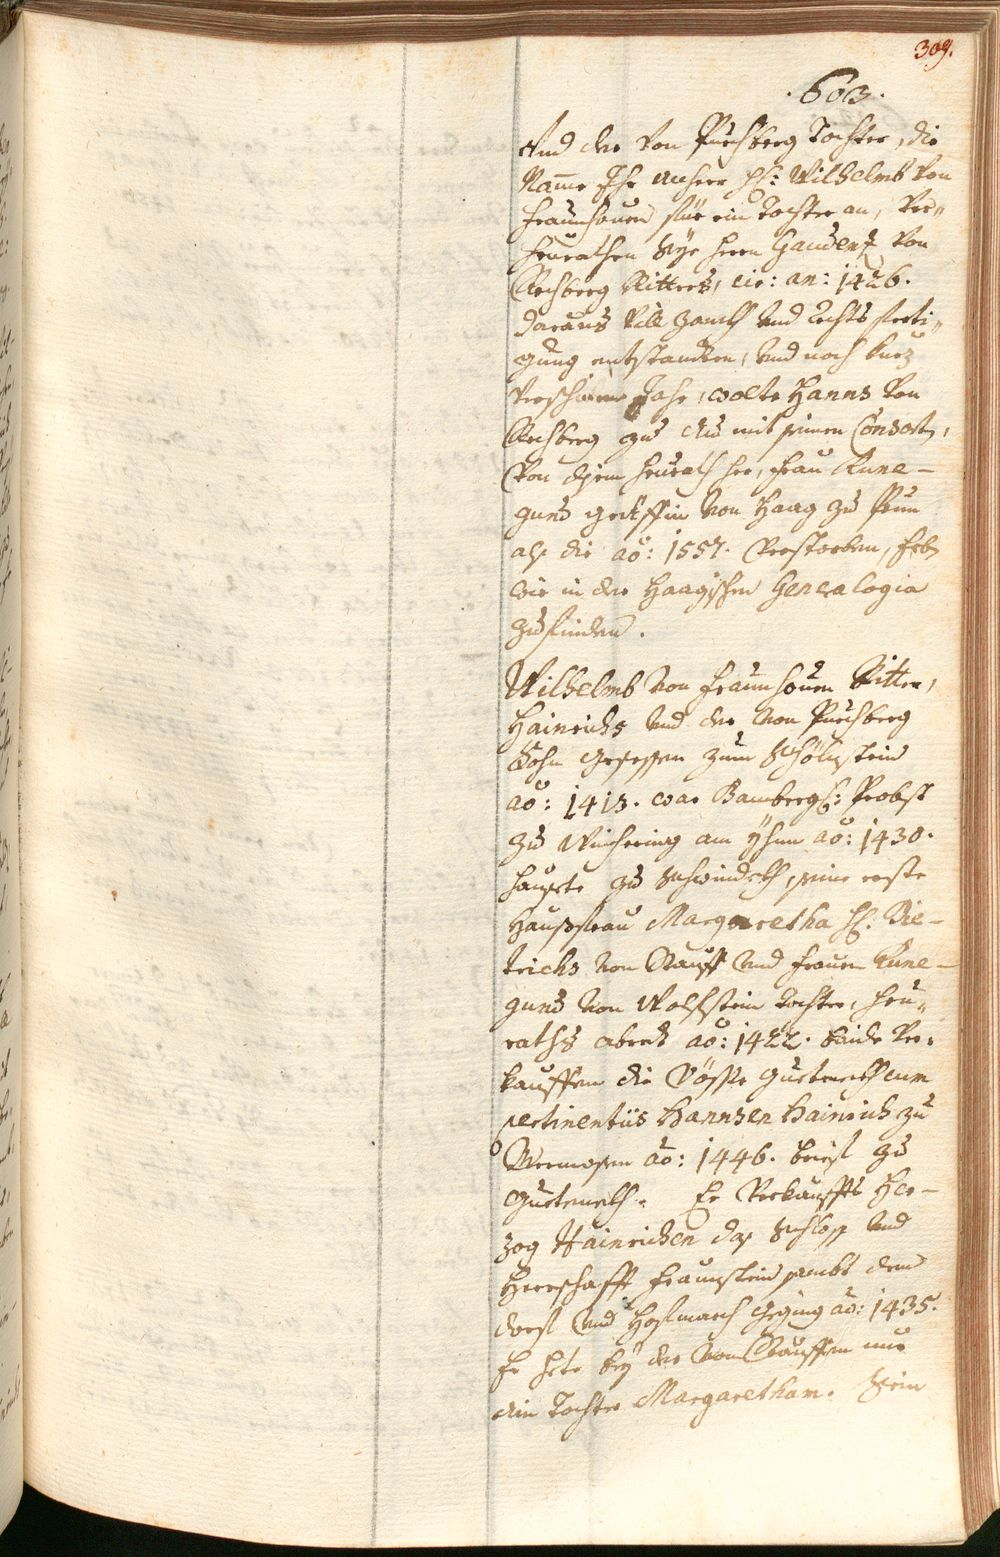 309.
.603.
Und der von Puechberg Tochter, die
Namme Ihr Anherr H: Wilhelmb von
Fraunhouen für ein Tochter an, ver-
heurathen Sye herrn Gaudenz von
Rechberg Rittern, cir: an: 1426.
daraus vill zanckh vnd Rechtsferti-
gung entstanden, vnd noch kurz
verschinne Jahr, wolte Hanns von
Rechberg zu mit seinen Consort,
von disem heurath her, frau Kune-
gund Gräffin von Haag zu Prun
als die ao: 1557. verstorben, Erbn
wie in der Haagischen Genealogia
zufinden.
Wilhelmb von Fraunhouen Ritter,
Hainrichs vnd der von Puechberg
Sohn gesessen zum
ao: 1413. war Bambergs: Probst
zu Winhering am Yhnn ao: 1430.
hauste zu Schwindeckh, seine erste
Haußfrau Margaretha H: Die-
trichs von Stauff vnd frauen Kune-
gund von Wolfstein Tochter, heu-
raths abredt ao: 1422. baide ver-
kauffen die Vösste Guetenekh cum
pertinentiis Hannsen Hainrich zu
ao: 1446. brief zu
Guetenekh. Er verkauffts Her-
zog Hainrichen das Schloss vnd
Herrschafft Fraunstein sambt dem
dorf vnd Hofmarch ao: 1435.
Er hete bey der von Stauffen nur
ein Tochter Margaretham. Sein